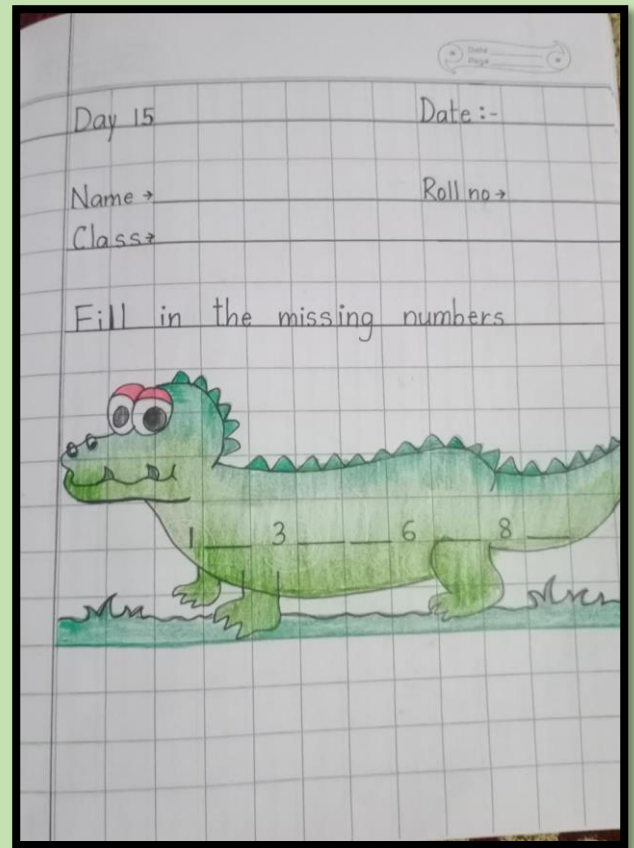 Date
Page
Day 15 Date :-
Name → Roll no →
Class →
Fill in the missing numbers
1 __ 3 __ __ 6 __ 8 __